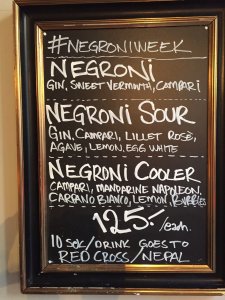 #NEGRONIWEEK
NEGRONI
GIN, SWEET VERMOUTH, CAMPARI
NEGRONI SOUR
GIN, CAMPARI, LILLET ROSÉ,
AGAVE, LEMON, EGG WHITE
NEGRONI COOLER
CAMPARI, MANDARINE NAPOLEON,
CARPANO BIANCO, LEMON, BUBBLES
125:-/each.
10 SEK/DRINK GOES TO
RED CROSS/NEPAL